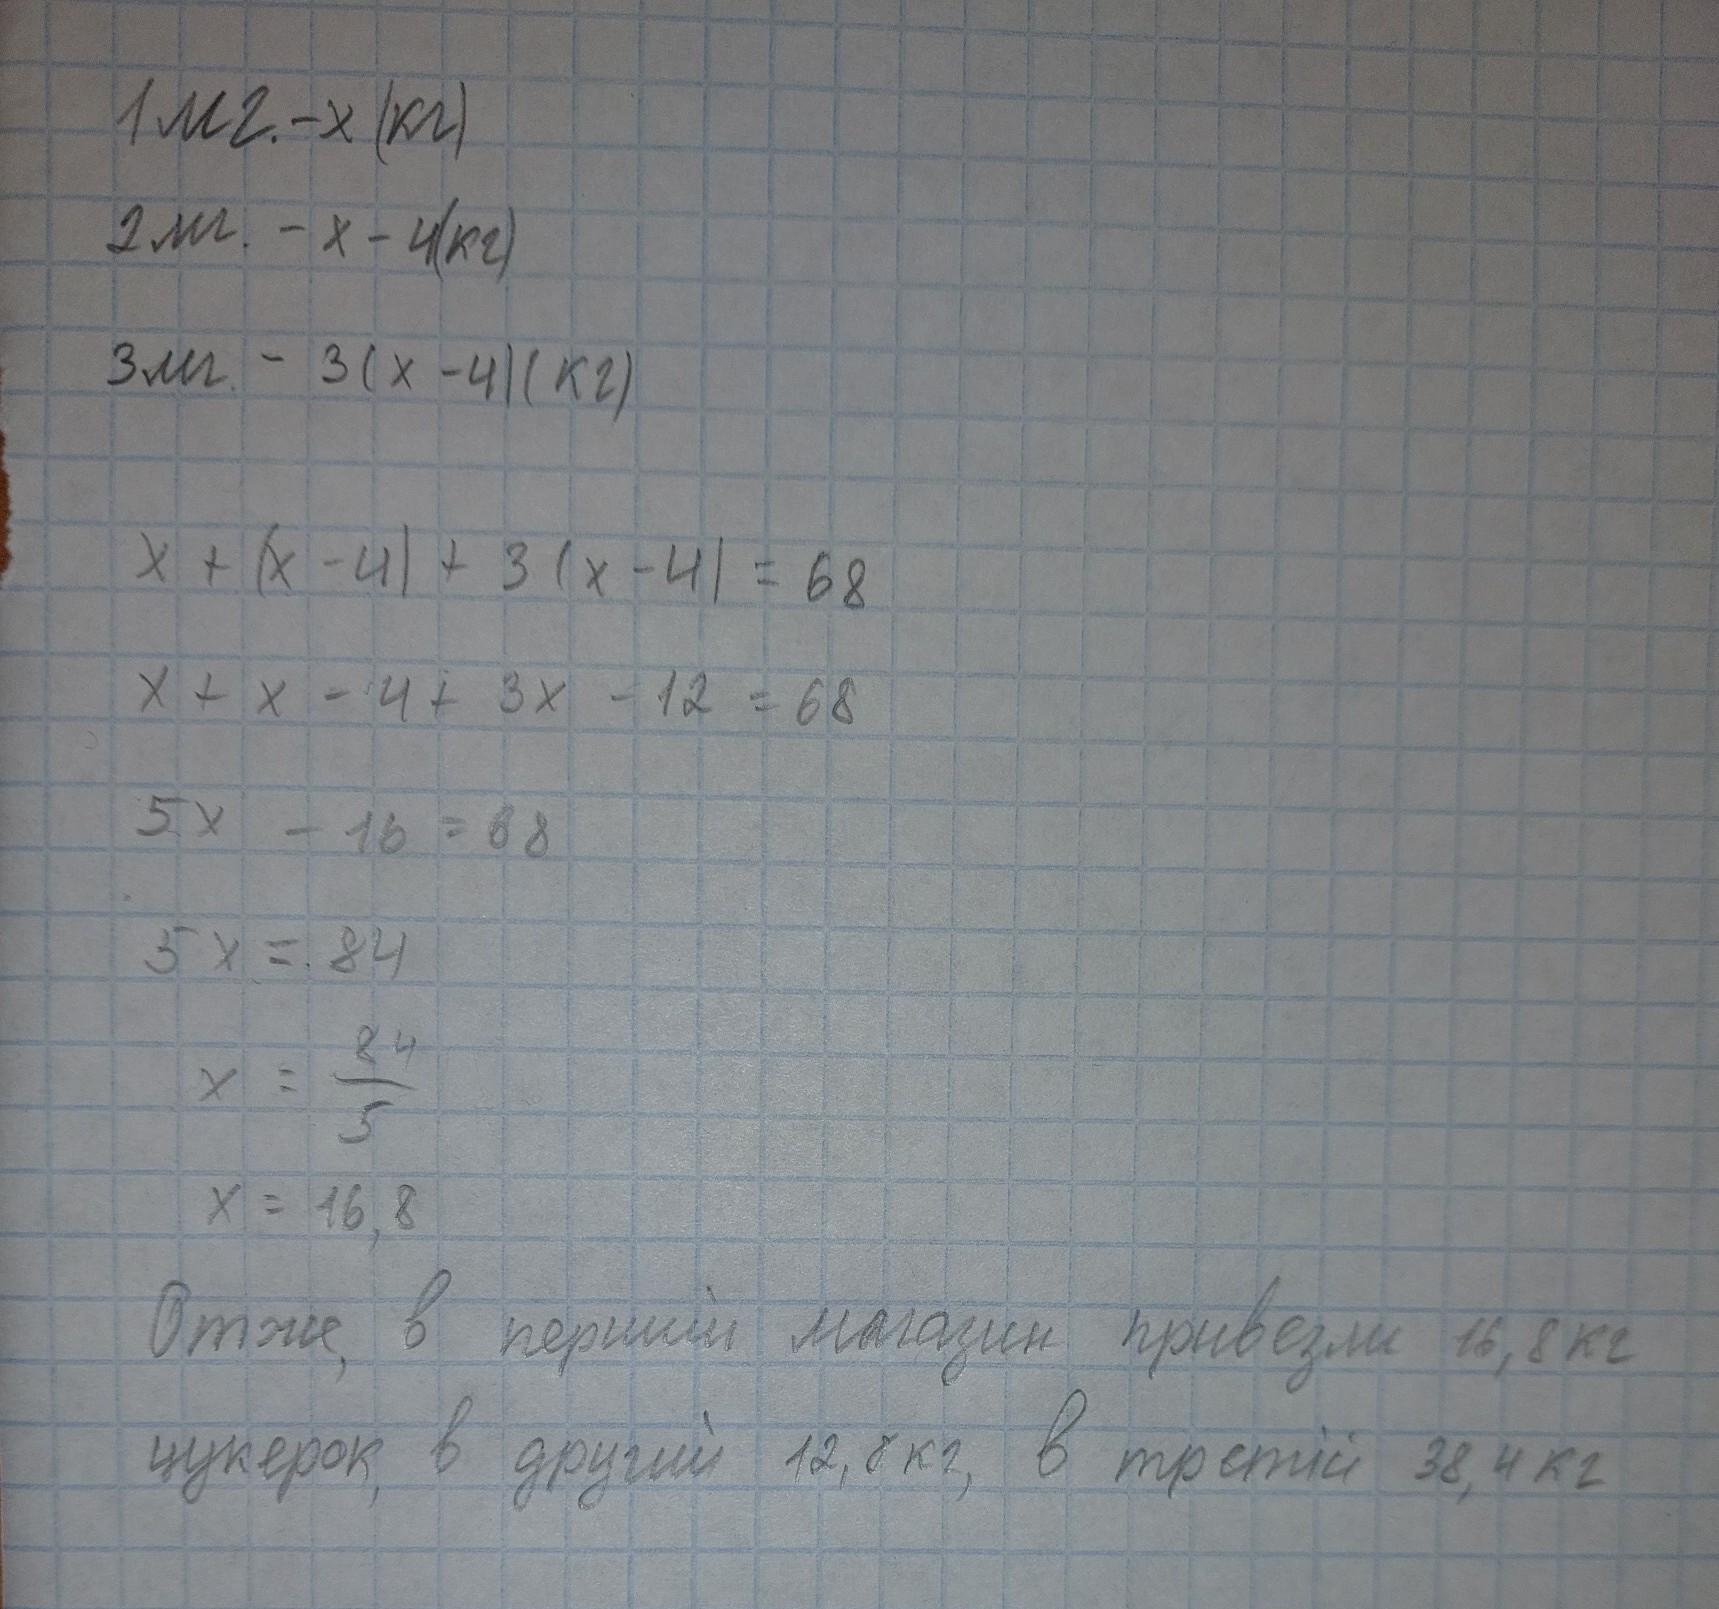 1 мг. - x (кг)
2 мг. - x - 4 (кг)
3 мг. - 3(x - 4) (кг)
x + (x - 4) + 3(x - 4) = 68
x + x - 4 + 3x - 12 = 68
5x - 16 = 68
5x = 84
x = 84/5
x = 16,8
Отже, в перший магазин привезли 16,8 кг
цукерок, в другий 12,8 кг, в третій 38,4 кг